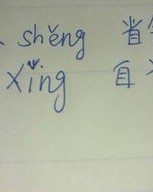 shěng 省
xǐng 自